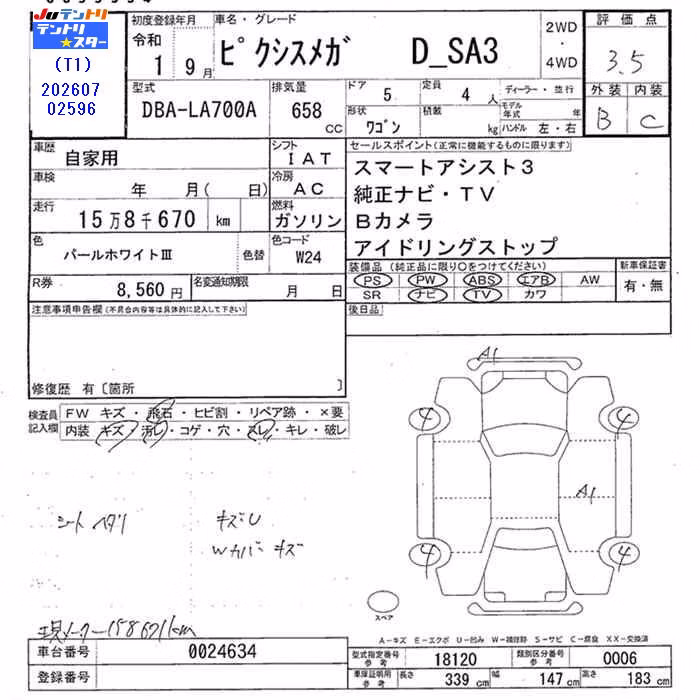 Juテントリ
テントリ★スター
(T1)
202607
02596
初度登録年月
令和
1 9月
車名・グレード
ピクシスメガ D_SA3
2WD
・
4WD
評価点
3.5
外装 内装
B C
型式
DBA-LA700A
排気量
658
CC
ドア
5
定員
4人
形状
ワゴン
積載
kg
ディーラー・並行
モデル年式 年
ハンドル 左・右
車歴
自家用
シフト
IAT
車検
年 月( 日)
冷房
AC
走行
15万8千670 km
燃料
ガソリン
色
パールホワイトⅢ
色替
色コード
W24
R券
8,560円
名変通知期限
月 日
セールスポイント(正常に機能するものに限ります)
スマートアシスト3
純正ナビ・TV
Bカメラ
アイドリングストップ
装備品(純正品に限り○をつけてください)
PS PW ABS エアB AW
SR ナビ TV カワ
新車保証書
有・無
後日品
注意事項申告欄(不具合内容等は具体的に記入して下さい)
修復歴 有〔箇所 〕
検査員記入欄
FW キズ・飛石・ヒビ割・リペア跡・×要
内装 キズ・汚レ・コゲ・穴・スレ・キレ・破レ
シートヘタリ
キズU
Wカバーキズ
A1
4
4
A1
4
4
スペア
現メーター158671km
A－キズ E－エクボ U－凹み W－補修跡 S－サビ C－腐食 XX－交換済
車台番号
0024634
登録番号
型式指定番号
参考
18120
類別区分番号
参考
0006
車庫証明用
参考
長さ 339cm
幅 147cm
高さ 183cm